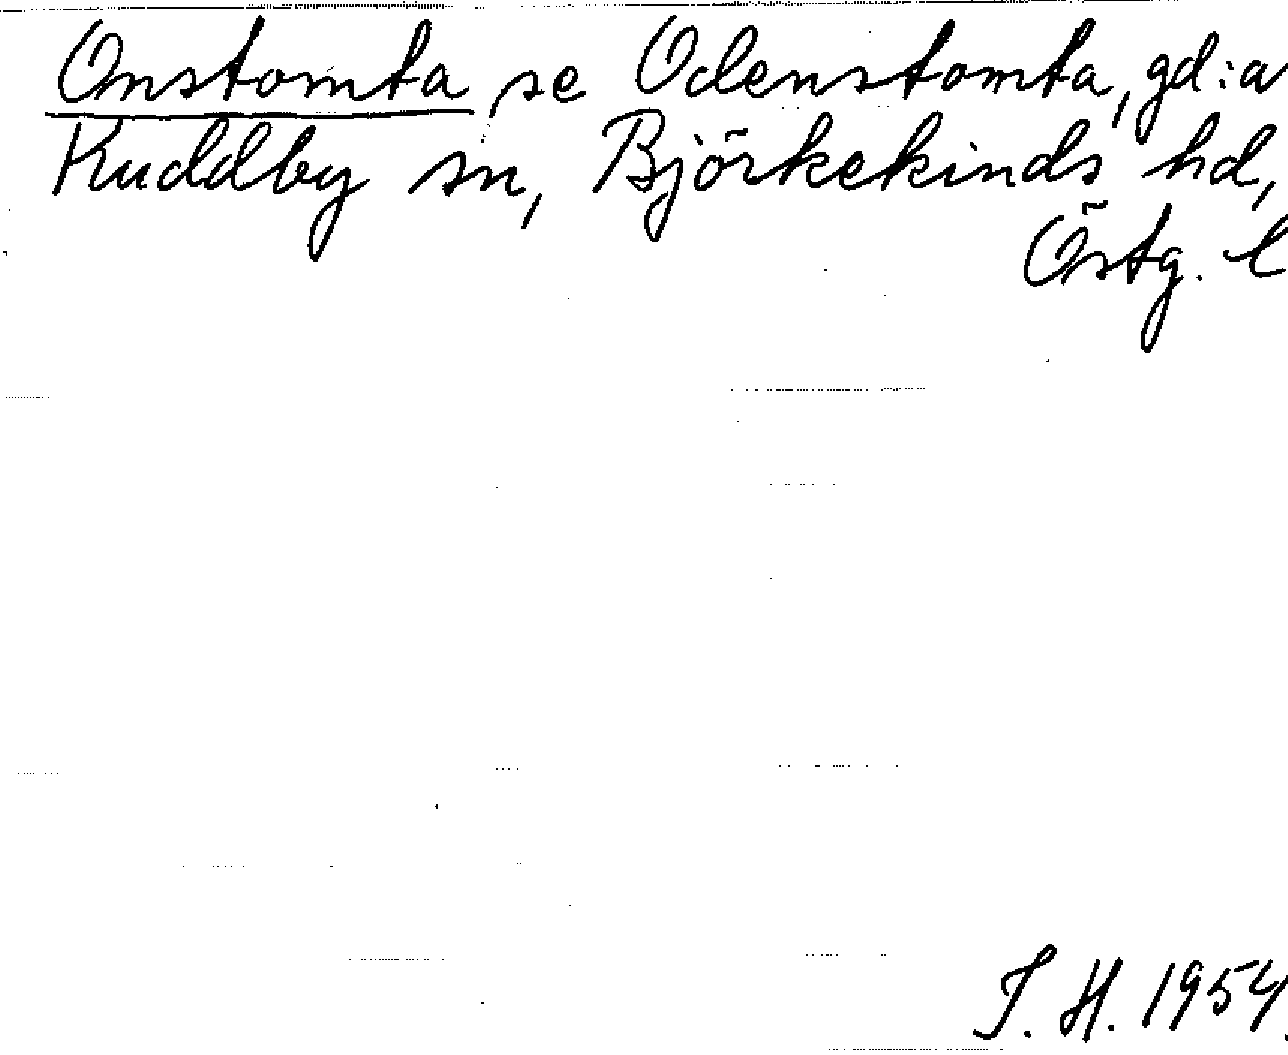 Onstomta, se Odenstomta, gd:a
Kuddby sn, Björkekinds hd,
Östg. l
I. H. 1954.